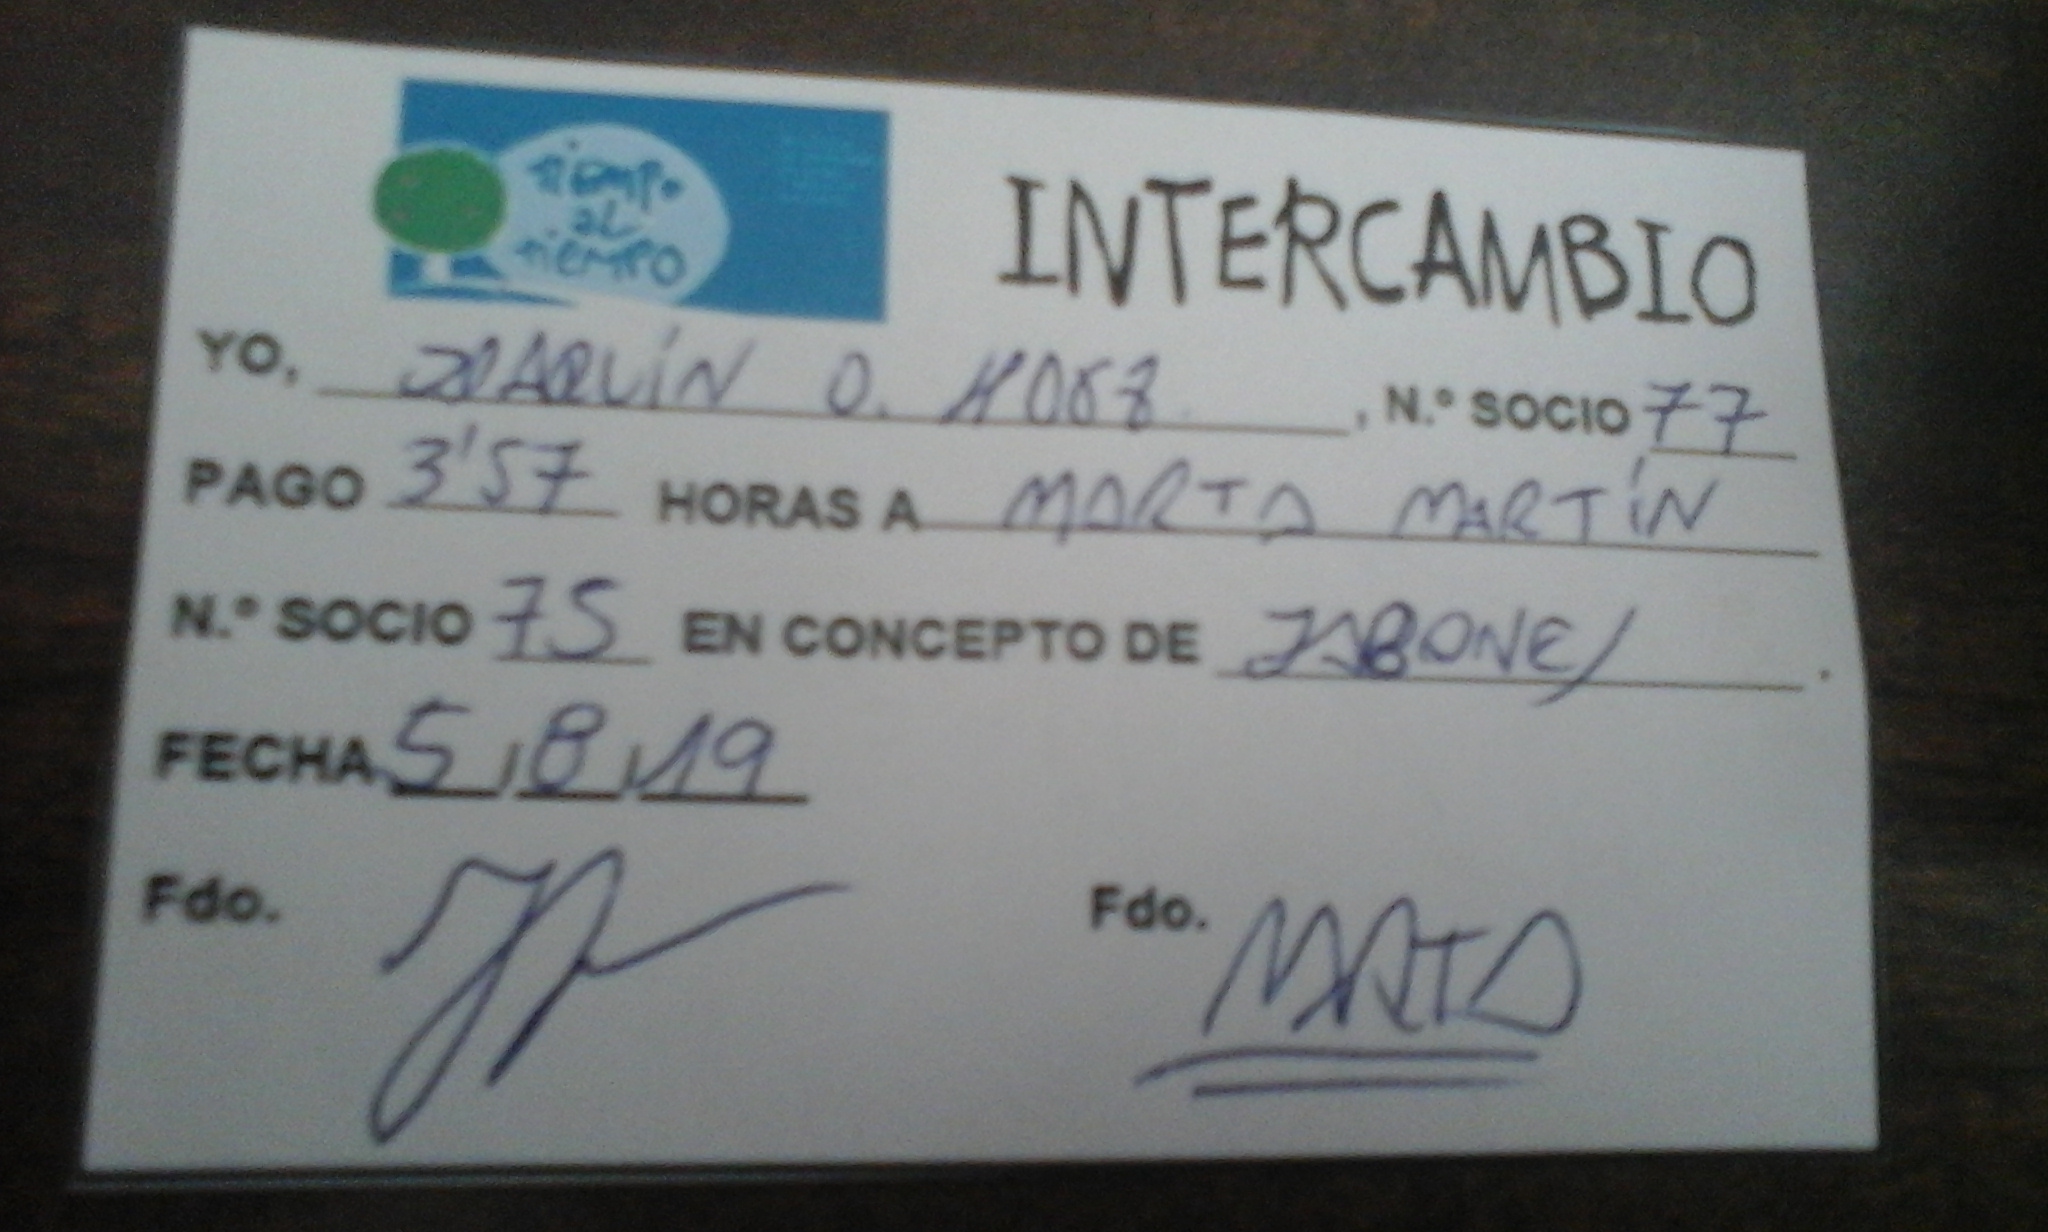 tiempo
al
tiempo
INTERCAMBIO
YO, JOAQUÍN O. , N.º SOCIO 77
PAGO 3'57 HORAS A MARTA MARTÍN
N.º SOCIO 75 EN CONCEPTO DE JABONES.
FECHA 5/8/19
Fdo. Fdo. MATA